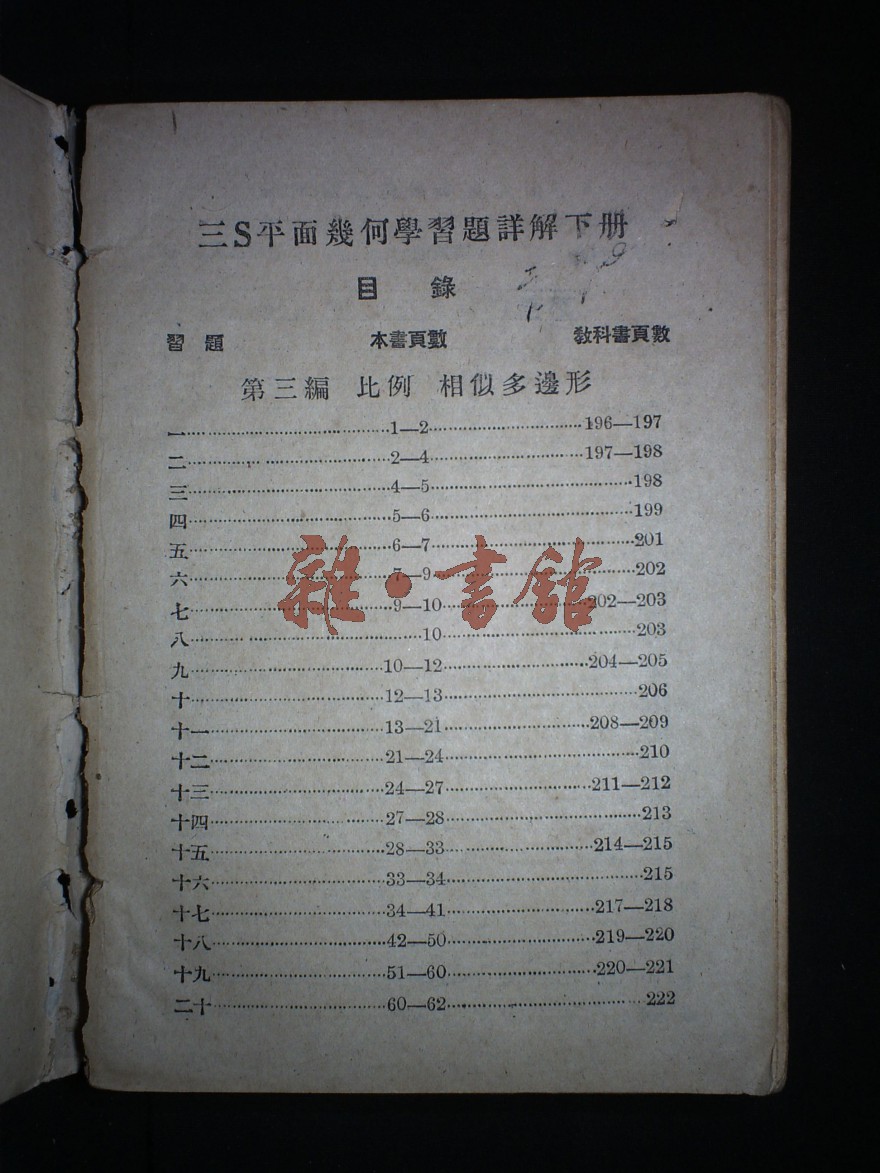 三S平面幾何學習題詳解下册
目 錄
習題 本書頁數 教科書頁數
第三編 比例 相似多邊形
一 1—2 196—197
二 2—4 197—198
三 4—5 198
四 5—6 199
五 6—7 201
六 7—9 202
七 9—10 202—203
八 10 203
九 10—12 204—205
十 12—13 206
十一 13—21 208—209
十二 21—24 210
十三 24—27 211—212
十四 27—28 213
十五 28—33 214—215
十六 33—34 215
十七 34—41 217—218
十八 42—50 219—220
十九 51—60 220—221
二十 60—62 222
雜·書館